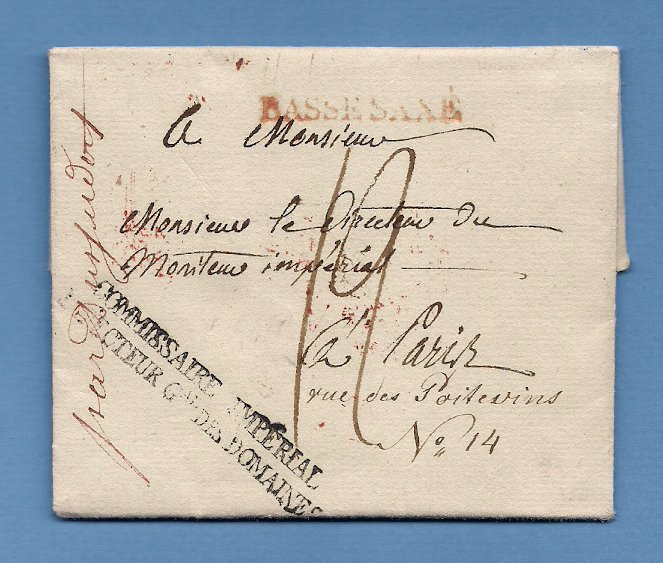 BASSE SAXE
A Monsieur
Monsieur le Directeur du
Moniteur impérial
à Paris
rue des Poitevins
No 14
par Dusseldorf
COMMISSAIRE IMPÉRIAL
DIRECTEUR GAL DES DOMAINES